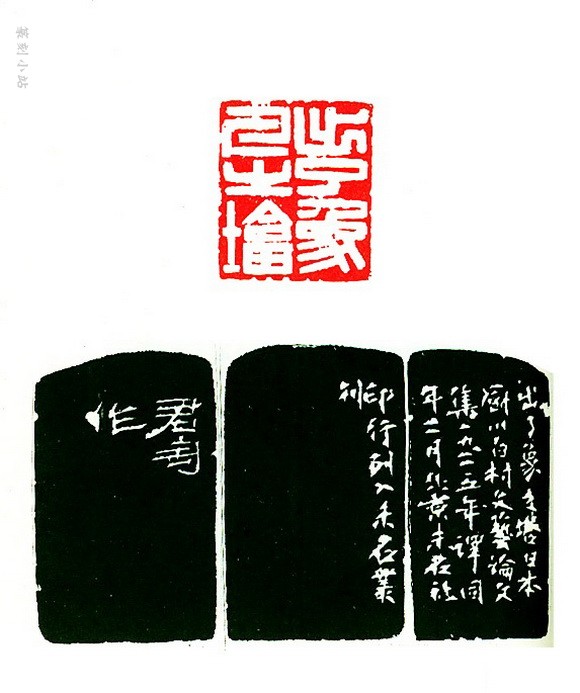 篆刻小站
出了象
牙之塔
出了象牙之塔日本
厨川白村文藝論文
集一九二五年譯同
年十二月北京未名社
印行列入未名叢
刊
君匋
作